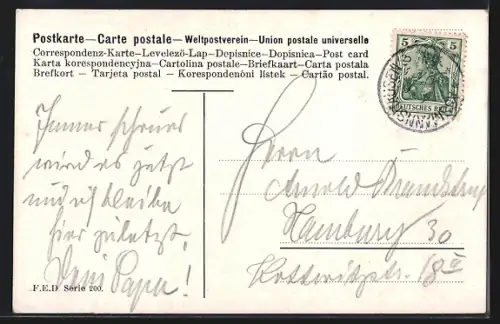 Postkarte—Carte postale—Weltpostverein—Union postale universelle
Correspondenz-Karte—Levelező-Lap—Dopisnice—Dopisnica—Post card
Karta korespondencyjna—Cartolina postale—Briefkaart—Carta postala
Brefkort — Tarjeta postal — Korespondenóni listek — Cartão postal.
5 5
DEUTSCHES REICH
Immer schöner
wird es jetzt
und ich bleibe
hier zuletzt.
Dein Papa!
F.E.D. Serie 200.
Herrn
Arnold
Hamburg 30
18 II